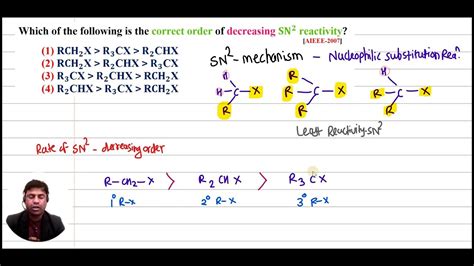 Which of the following is the correct order of decreasing SN² reactivity?
[AIEEE-2007]
(1) RCH₂X > R₃CX > R₂CHX
(2) RCH₂X > R₂CHX > R₃CX
(3) R₃CX > R₂CHX > RCH₂X
(4) R₂CHX > R₃CX > RCH₂X
SN²- mechanism - Nucleophilic substitution Reaⁿ.
H R H
R C X R C X C X
H R R R
Least Reactivity SN²
Rate of SN² - decreasing order
R-CH₂-X > R₂CHX > R₃CX
1° R-X 2° R-X 3° R-X